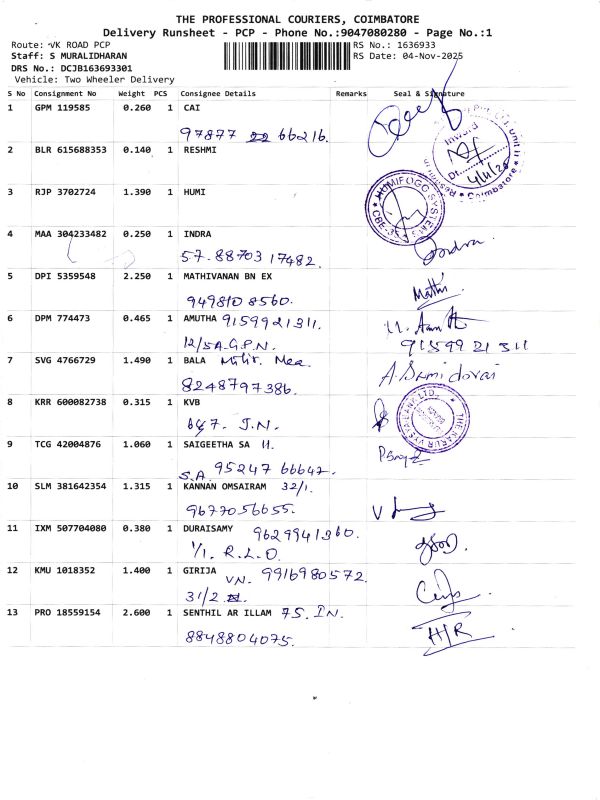 THE PROFESSIONAL COURIERS, COIMBATORE
Delivery Runsheet - PCP - Phone No.:9047080280 - Page No.:1
Route: VK ROAD PCP
RS No.: 1636933
Staff: S MURALIDHARAN
RS Date: 04-Nov-2025
DRS No.: DCJB163693301
Vehicle: Two Wheeler Delivery
S No Consignment No Weight PCS Consignee Details Remarks Seal & Signature
1 GPM 119585 0.260 1 CAI
97877 22 66216.
Inward
4/11/25
Coimbatore
2 BLR 615688353 0.140 1 RESHMI
3 RJP 3702724 1.390 1 HUMI
HUMIFOGG SYSTEMS
CBE-35
4 MAA 304233482 0.250 1 INDRA
57. 88703 17482.
Indra.
5 DPI 5359548 2.250 1 MATHIVANAN BN EX
949810 8560.
Mathi
6 DPM 774473 0.465 1 AMUTHA 9159921311.
12/5A.G.P.N.
91599 21 311
7 SVG 4766729 1.490 1 BALA
8248797386.
8 KRR 600082738 0.315 1 KVB
647. J.N.
THE KARUR VYSYA BANK LTD.
9 TCG 42004876 1.060 1 SAIGEETHA SA 11.
S.A. 95247 66647.
10 SLM 381642354 1.315 1 KANNAN OMSAIRAM 32/1.
9677056655.
11 IXM 507704080 0.380 1 DURAISAMY 9629941360.
1/1. R.L.O.
12 KMU 1018352 1.400 1 GIRIJA
VN. 9916980572.
31/2
13 PRO 18559154 2.600 1 SENTHIL AR ILLAM 75. IN.
8848804075.
H/R